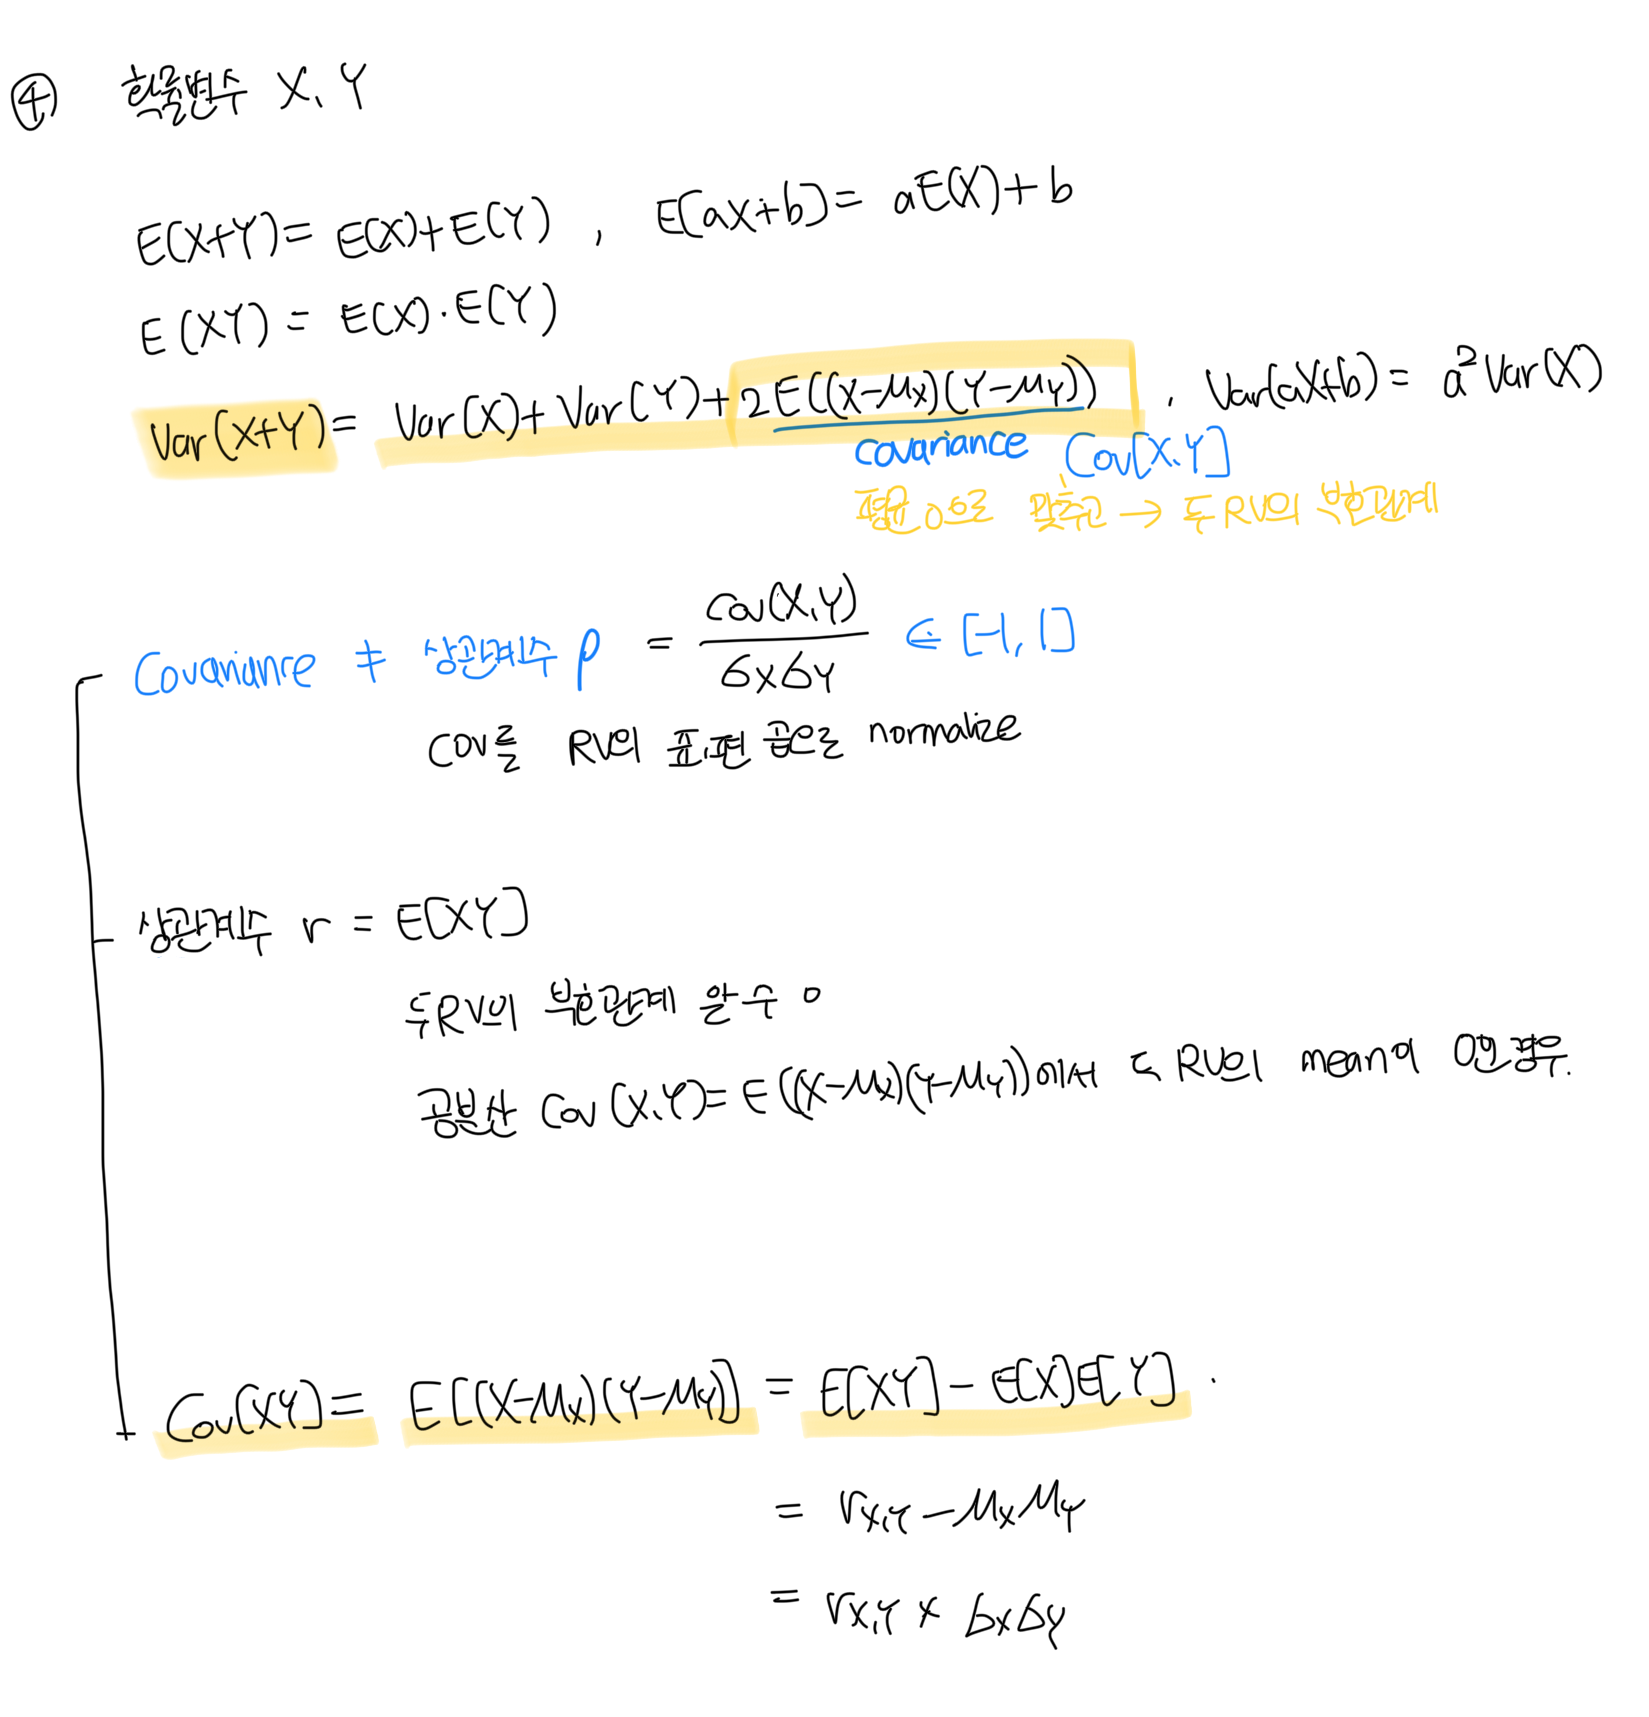 ④ 확률변수 X, Y
E(X+Y)= E(X)+E(Y) , E[aX+b]= aE(X)+b
E(XY) = E(X)·E(Y)
Var(X+Y)= Var(X)+Var(Y)+2E((X-μx)(Y-μy)) , Var(aX+b)= a²Var(X)
covariance Cov[X,Y]
평균 0으로 맞추고 → 두 RV의 부호관계
Covariance ≠ 상관계수 ρ = Cov(X,Y) / σxσy ∈ [-1, 1]
cov를 RV의 표.편 곱으로 normalize
상관계수 r = E[XY]
두 RV의 부호관계 알 수 o
공분산 Cov(X,Y)= E((X-μx)(Y-μy))에서 두 RV의 mean이 0인 경우.
Cov(XY)= E[(X-μx)(Y-μy)] = E[XY]-E[X]E[Y].
= rx,y - μxμy
= rx,y × σxσy